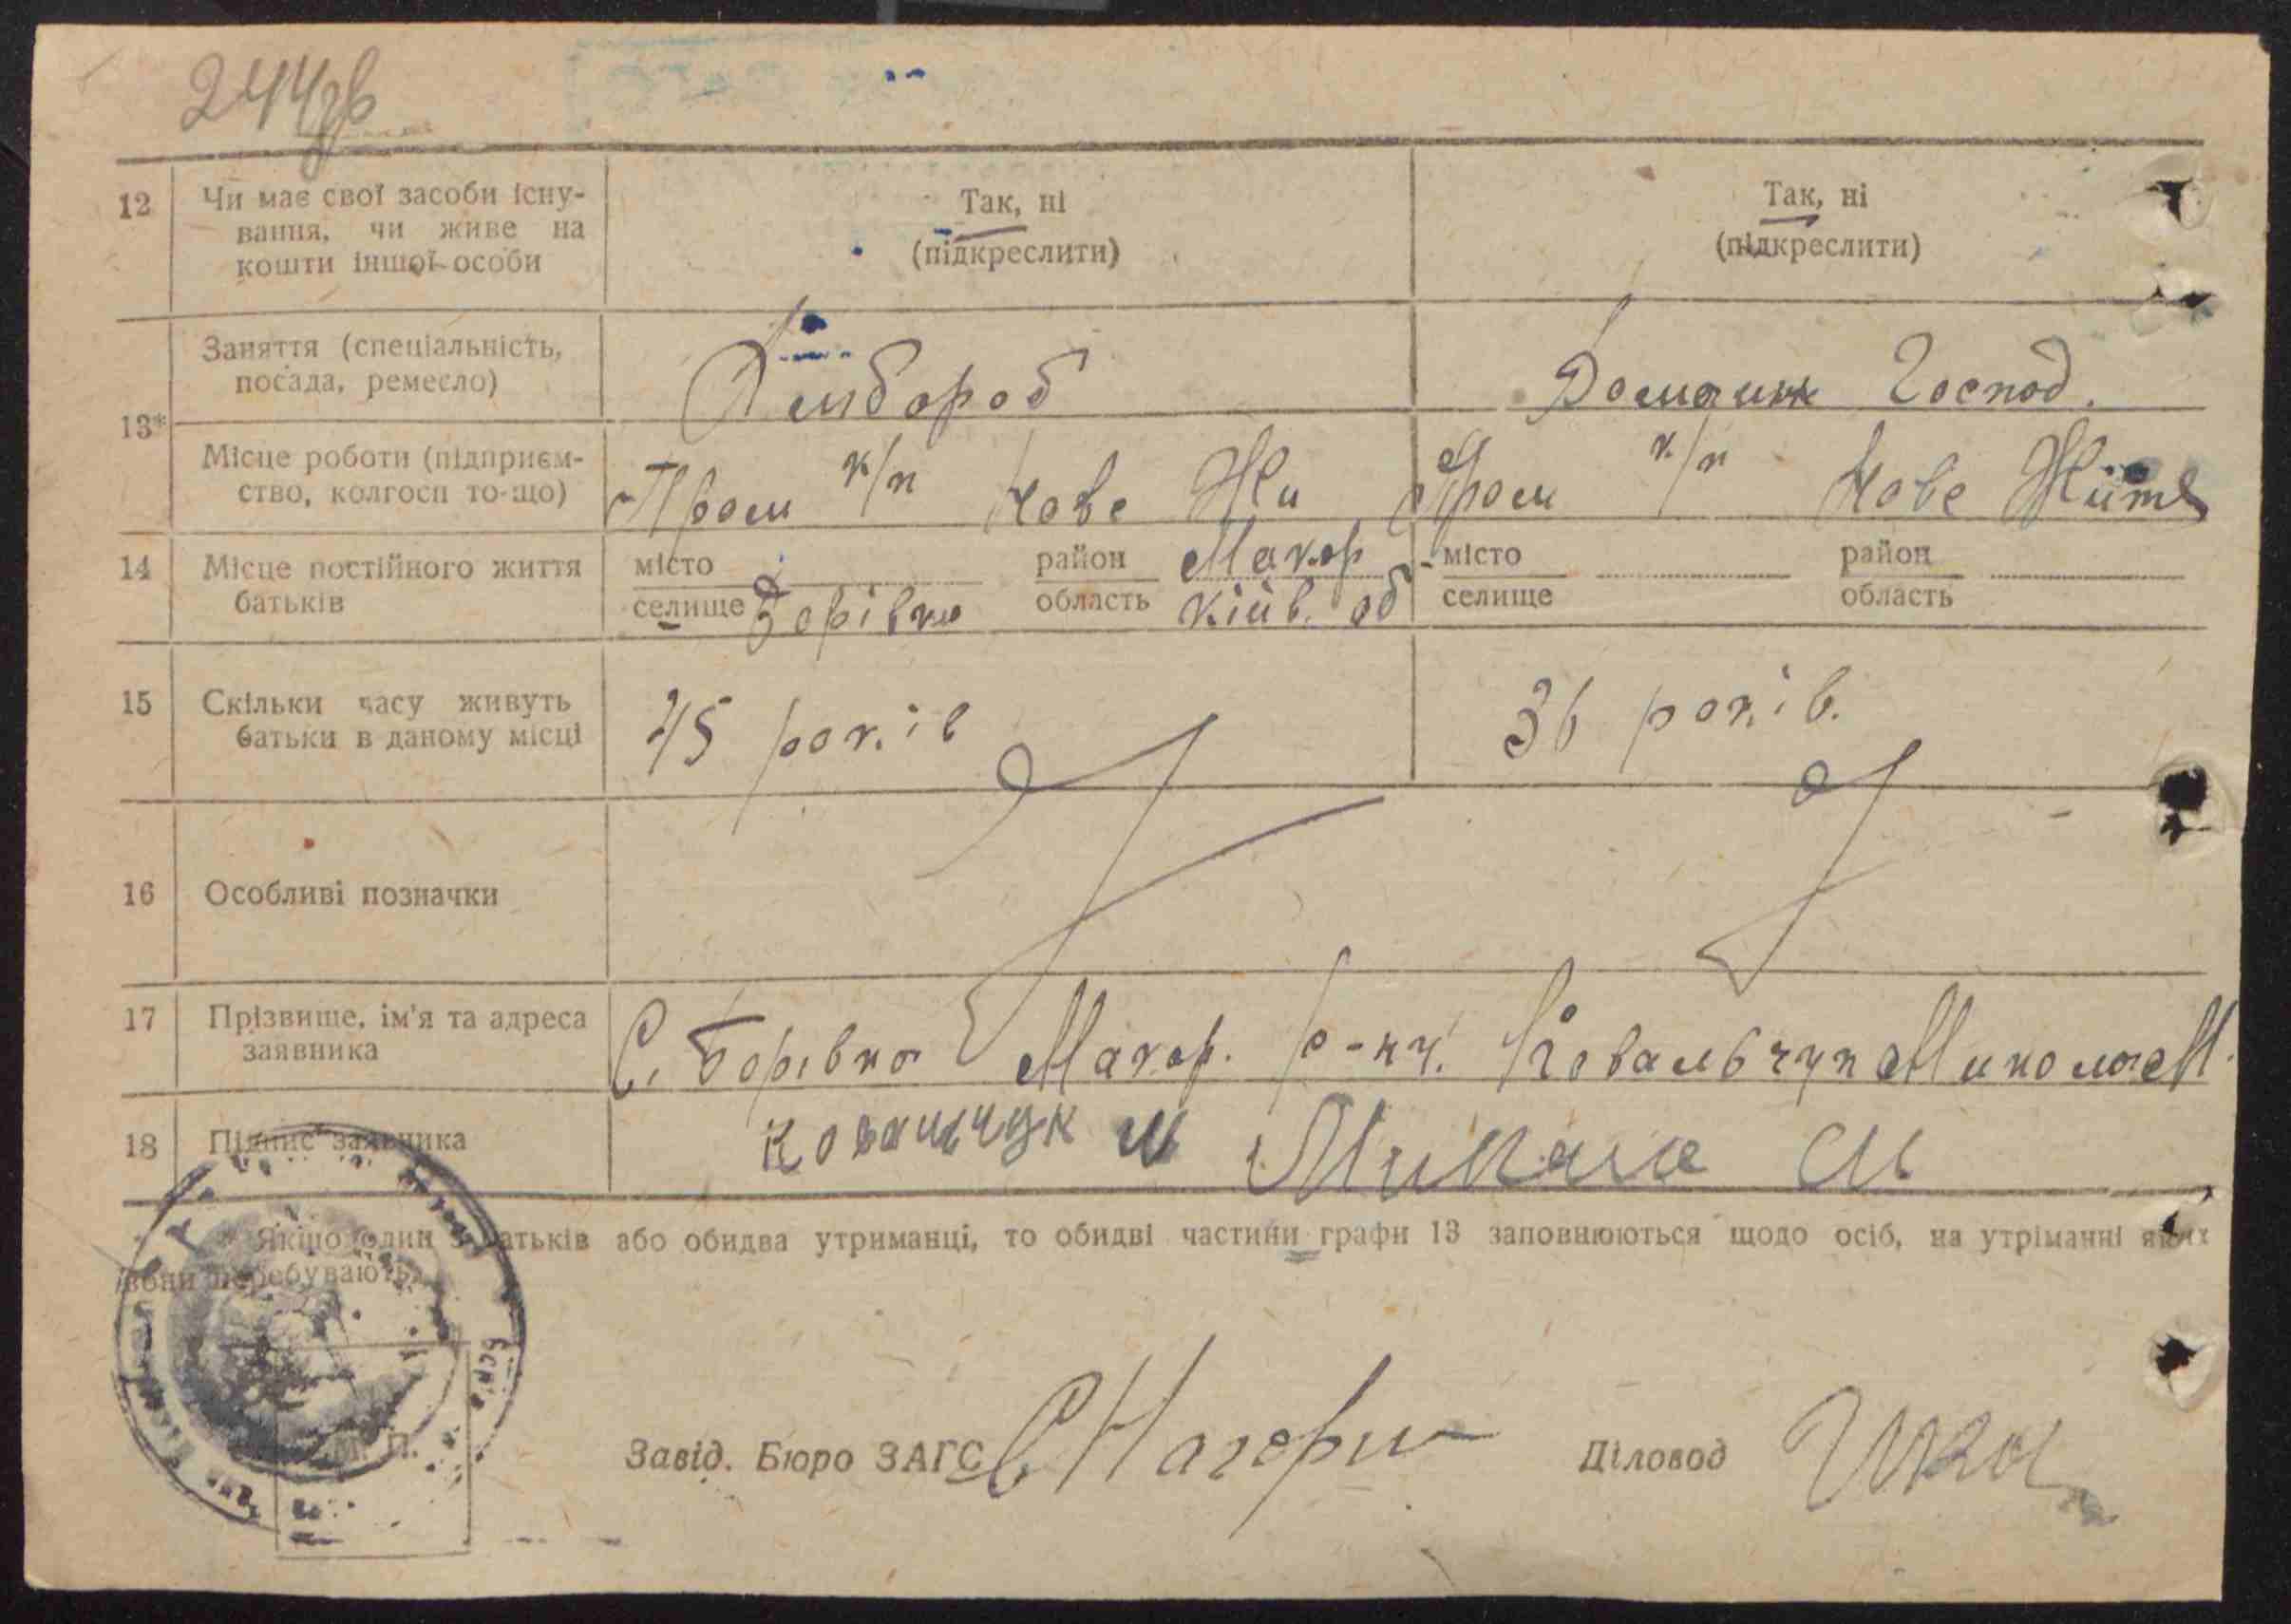 244зв
12 Чи має свої засоби існу- Так, ні Так, ні
вання, чи живе на (підкреслити) (підкреслити)
кошти іншої особи
Заняття (спеціальність,
посада, ремесло) Домашн Господ.
13*
Місце роботи (підприєм-
ство, колгосп то-що) Пром к/п Нове Жи Пром к/п Нове Життя
14 Місце постійного життя місто район Макар місто район
батьків селище Борівка область Київ. об селище область
15 Скільки часу живуть 45 років 36 років.
батьки в даному місці
16 Особливі позначки
17 Прізвище, ім'я та адреса
заявника С. Борівка Макар. р-ну. Ковальчук Микола М.
18 Підпис заявника Ковальчук М Микола М
* Якщо один з батьків або обидва утриманці, то обидві частини графи 13 заповнюються щодо осіб, на утріманні яких
вони перебувають.
М. П.
Завід. Бюро ЗАГС Діловод